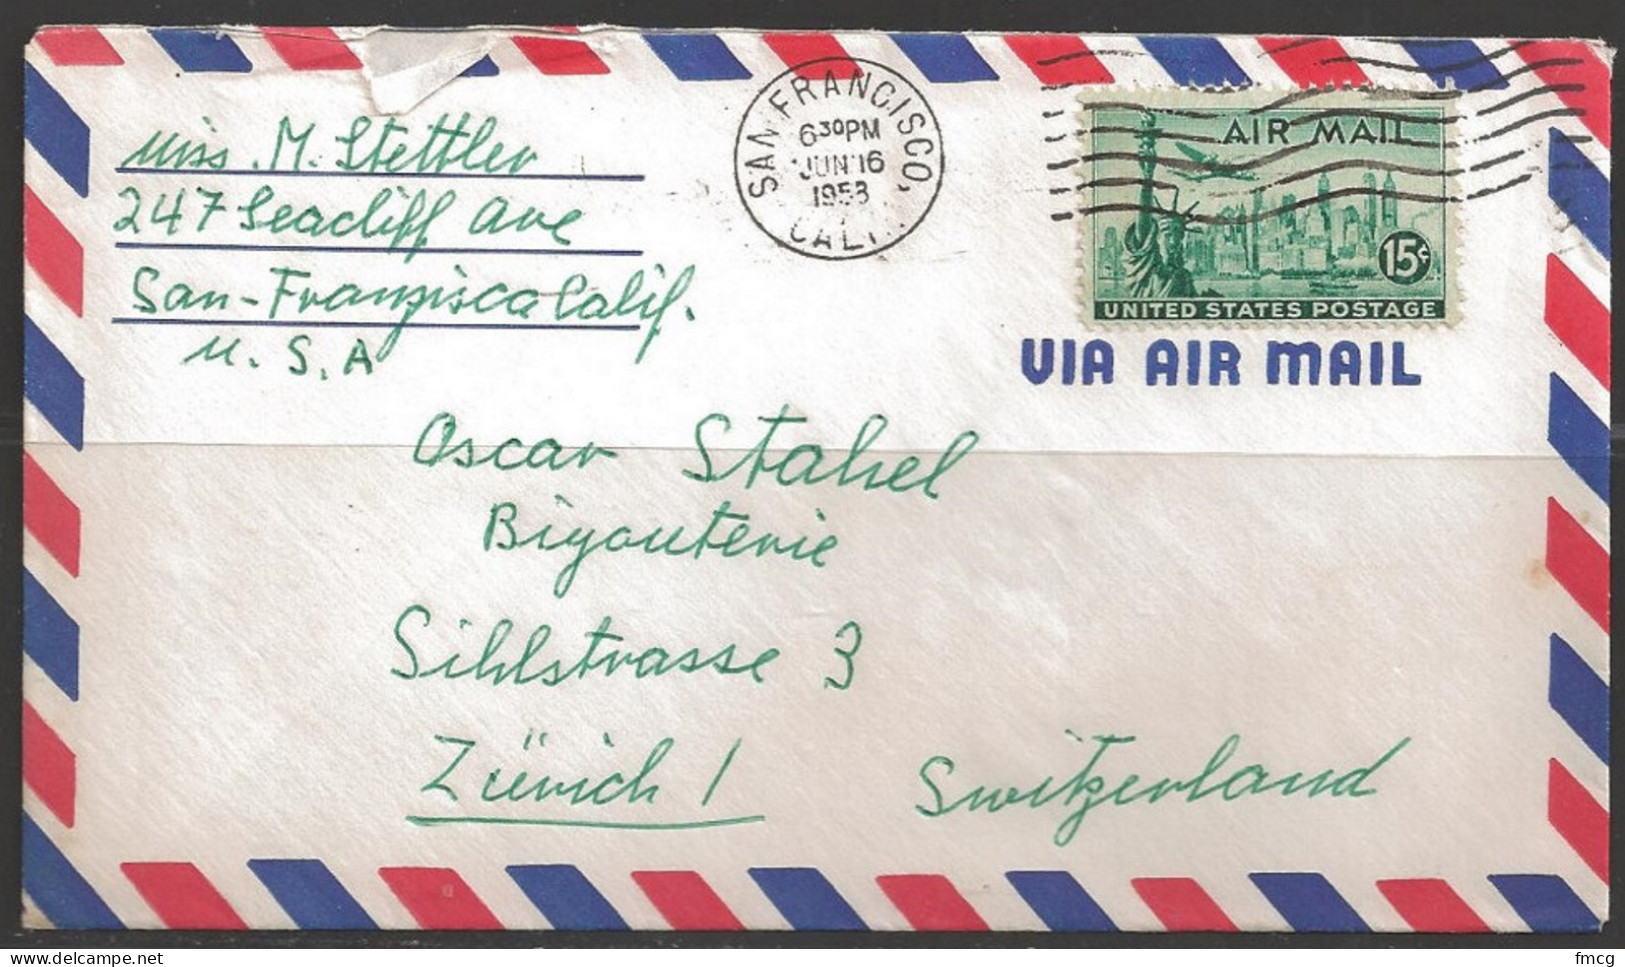 Miss. M. Stettler
247 Seacliff Ave
San-Franzisca Calif.
U. S. A
SAN FRANCISCO,
CALIF.
6 30 PM
JUN 16
1953
AIR MAIL
15¢
UNITED STATES POSTAGE
VIA AIR MAIL
Oscar Stahel
Biyouterie
Sihlstrasse 3
Zürich 1 Switzerland
fmcg